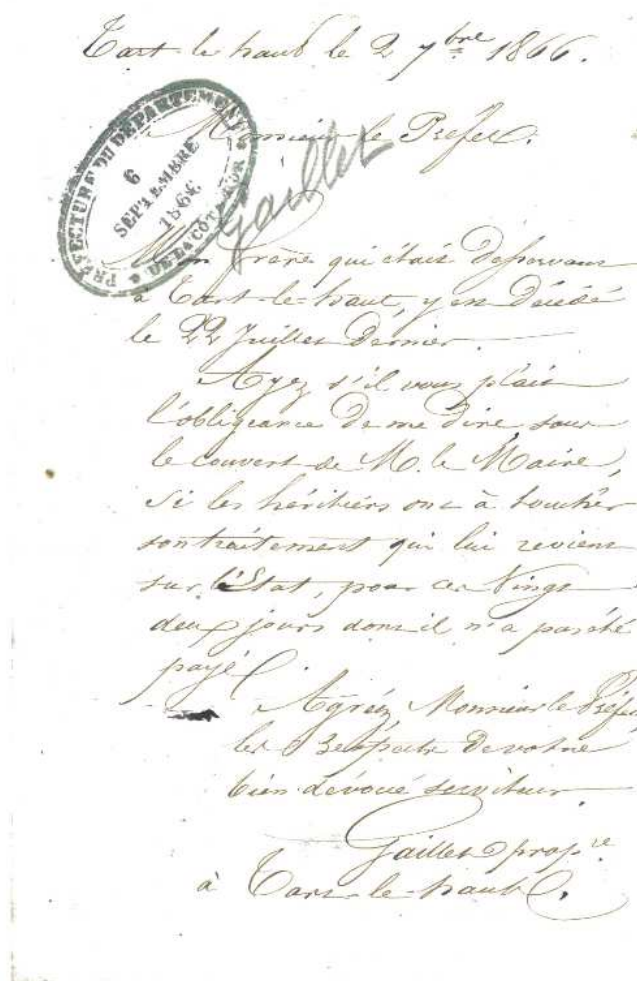 Tart le haut le 2 7bre 1866.
PRÉFECTURE DU DÉPARTEMENT
DE LA CÔTE D'OR
6
SEPTEMBRE
1866
Monsieur le Préfet.
Gaillet
Mon frère qui était desservant
à Tart-le-haut, y est décédé
le 22 Juillet dernier.
Ayez s'il vous plait
l'obligeance de me dire sous
le couvert de M. le Maire,
si les héritiers ont à toucher
son traitement qui lui revient
sur l'Etat, pour ces vingt
deux jours dont il n'a pas été
payé.
Agréez Monsieur le Préfet,
les Respects de votre
bien dévoué serviteur
Gaillet propre
à Tart-le-haut.